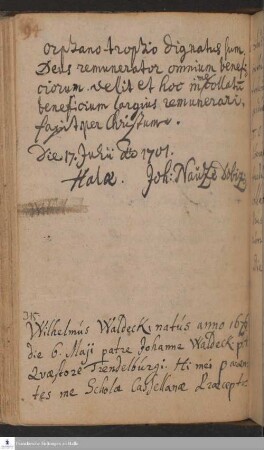 94
orphanotrophio dignatus sum.
Deus remunerator omnium benefi
ciorum velit et hoc in me collatū
beneficium largius remunerari,
faxit per Christum.
Die 17. Julii Ao 1701.
Halæ. Joh:
345.
Wilhelmús Waldeck natús anno 167
die 6. Maji patre Johanne Waldeck
Qvæstore Trendelbúrgi. Hi mei paren
tes me Scholæ Cassellanæ Præcepto